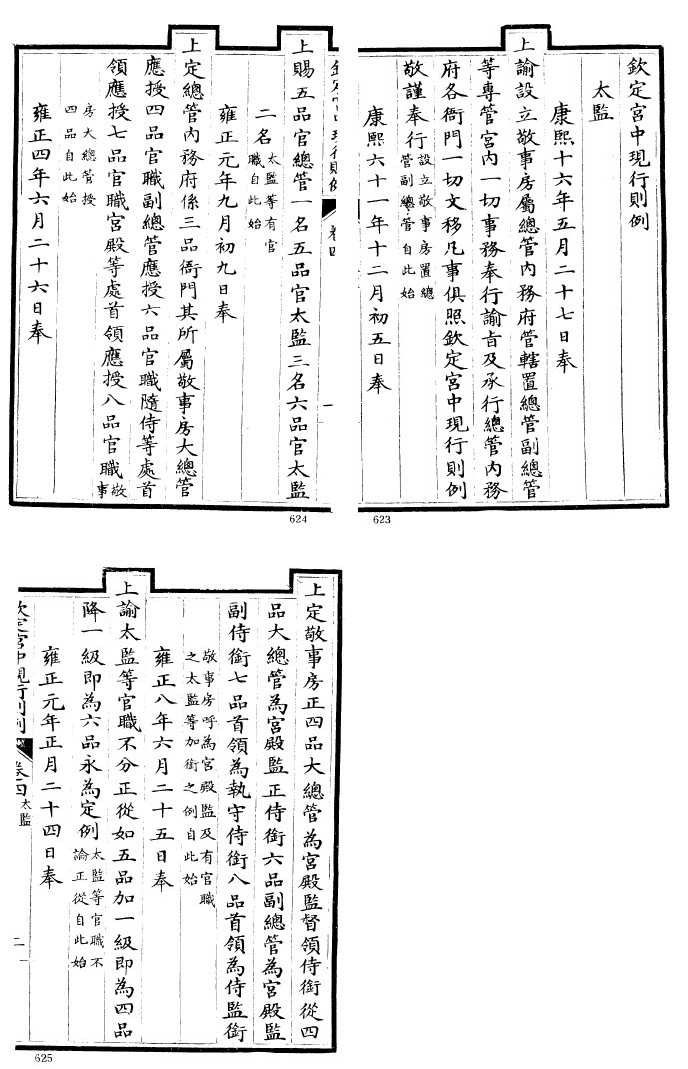 欽定宮中現行則例
太監
康熙十六年五月二十七日奉
上諭設立敬事房屬總管內務府管轄置總管副總管
等專管宮內一切事務奉行諭旨及承行總管內務
府各衙門一切文移凡事俱照欽定宮中現行則例
敬謹奉行設立敬事房置總
管副總管自此始
康熙六十一年十二月初五日奉
623
欽定宮中現行則例
卷四
一
上賜五品官總管一名五品官太監三名六品官太監
二名太監等有官
職自此始
雍正元年九月初九日奉
上定總管內務府係三品衙門其所屬敬事房大總管
應授四品官職副總管應授六品官職隨侍等處首
領應授七品官職宮殿等處首領應授八品官職敬
事
房大總管授
四品自此始
雍正四年六月二十六日奉
624
上定敬事房正四品大總管為宮殿監督領侍銜從四
品大總管為宮殿監正侍銜六品副總管為宮殿監
副侍銜七品首領為執守侍銜八品首領為侍監銜
敬事房呼為宮殿監及有官職
之太監等加銜之例自此始
雍正八年六月二十五日奉
上諭太監等官職不分正從如五品加一級即為四品
降一級即為六品永為定例太監等官職不
論正從自此始
雍正元年正月二十四日奉
欽定宮中現行則例
卷四
太監
二
625